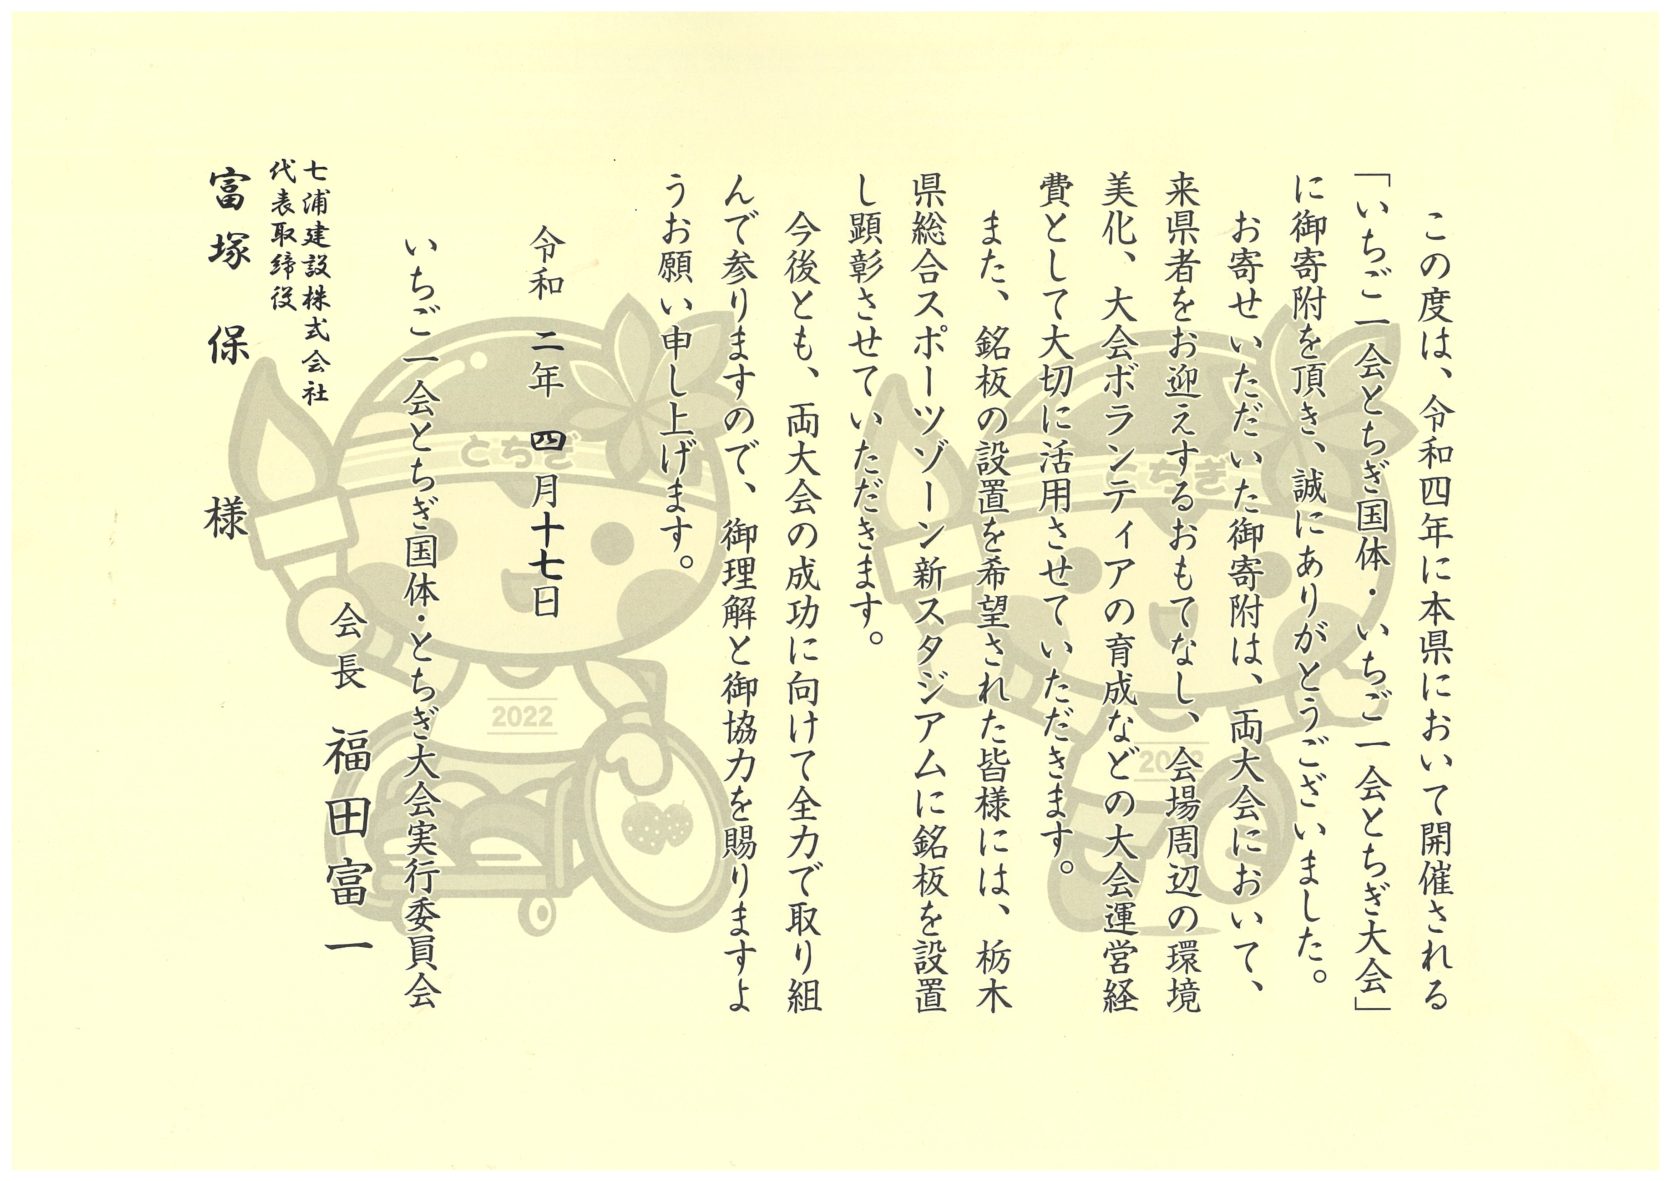 この度は、令和四年に本県において開催される
「いちご一会とちぎ国体・いちご一会とちぎ大会」
に御寄附を頂き、誠にありがとうございました。
お寄せいただいた御寄附は、両大会において、
来県者をお迎えするおもてなし、会場周辺の環境
美化、大会ボランティアの育成などの大会運営経
費として大切に活用させていただきます。
また、銘板の設置を希望された皆様には、栃木
県総合スポーツゾーン新スタジアムに銘板を設置
し顕彰させていただきます。
今後とも、両大会の成功に向けて全力で取り組
んで参りますので、御理解と御協力を賜りますよ
うお願い申し上げます。
令和 二年 四月十七日
いちご一会とちぎ国体・とちぎ大会実行委員会
会長 福田富一
七浦建設株式会社
代表取締役
富塚 保 様
とちぎ
2022
とちぎ
2022